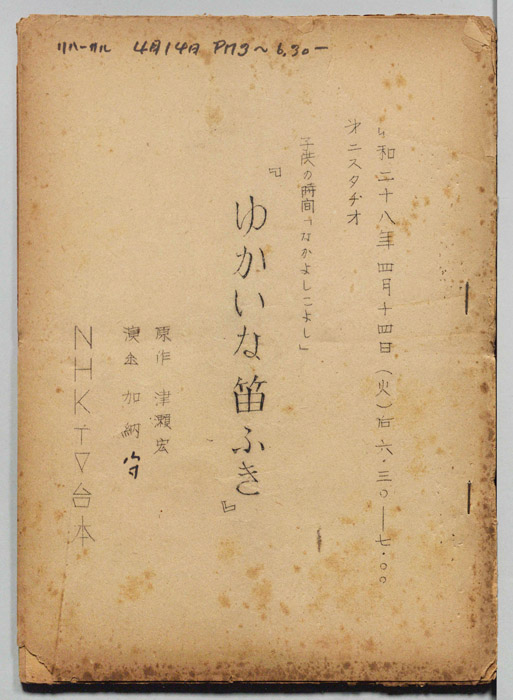 リハーサル 4月14日 PM3〜6.30ー
昭和二十八年四月十四日(火)后六・三〇―七・〇〇
第二スタヂオ
子供の時間「なかよしこよし」
『ゆかいな笛ふき』
原作 津瀬宏
演出 加納守
NHKTV台本